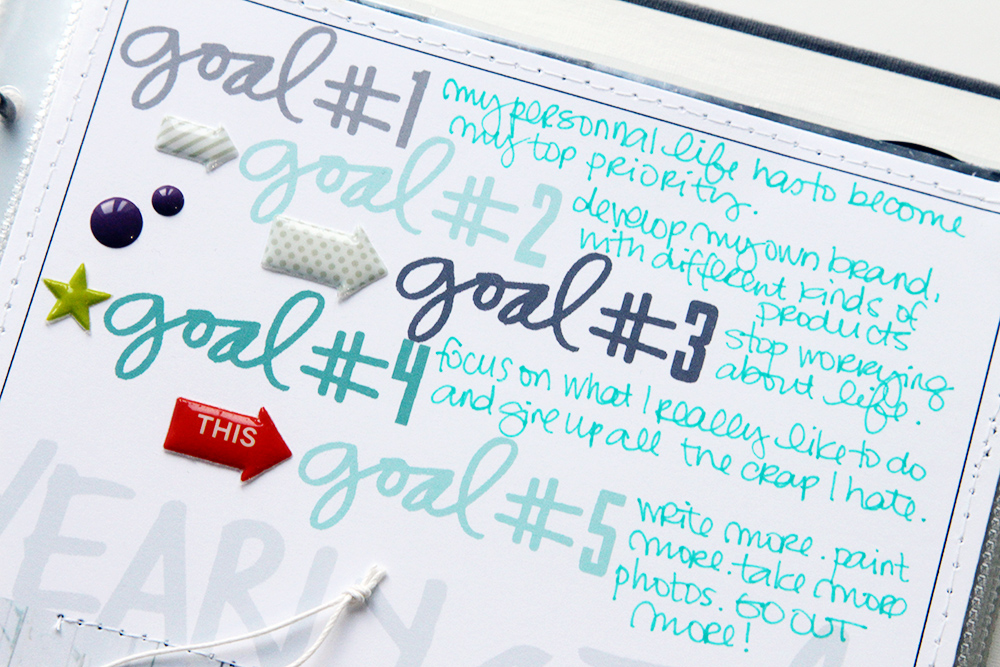 goal #1
my personnal life has to become
my top priority.
goal #2
develop my own brand,
with different kinds of
products
goal #3
stop worrying
about life.
goal #4
focus on what I really like to do
and give up all the crap I hate.
THIS
goal #5
write more. paint
more. take more
photos. GO OUT
more!
YEARLY